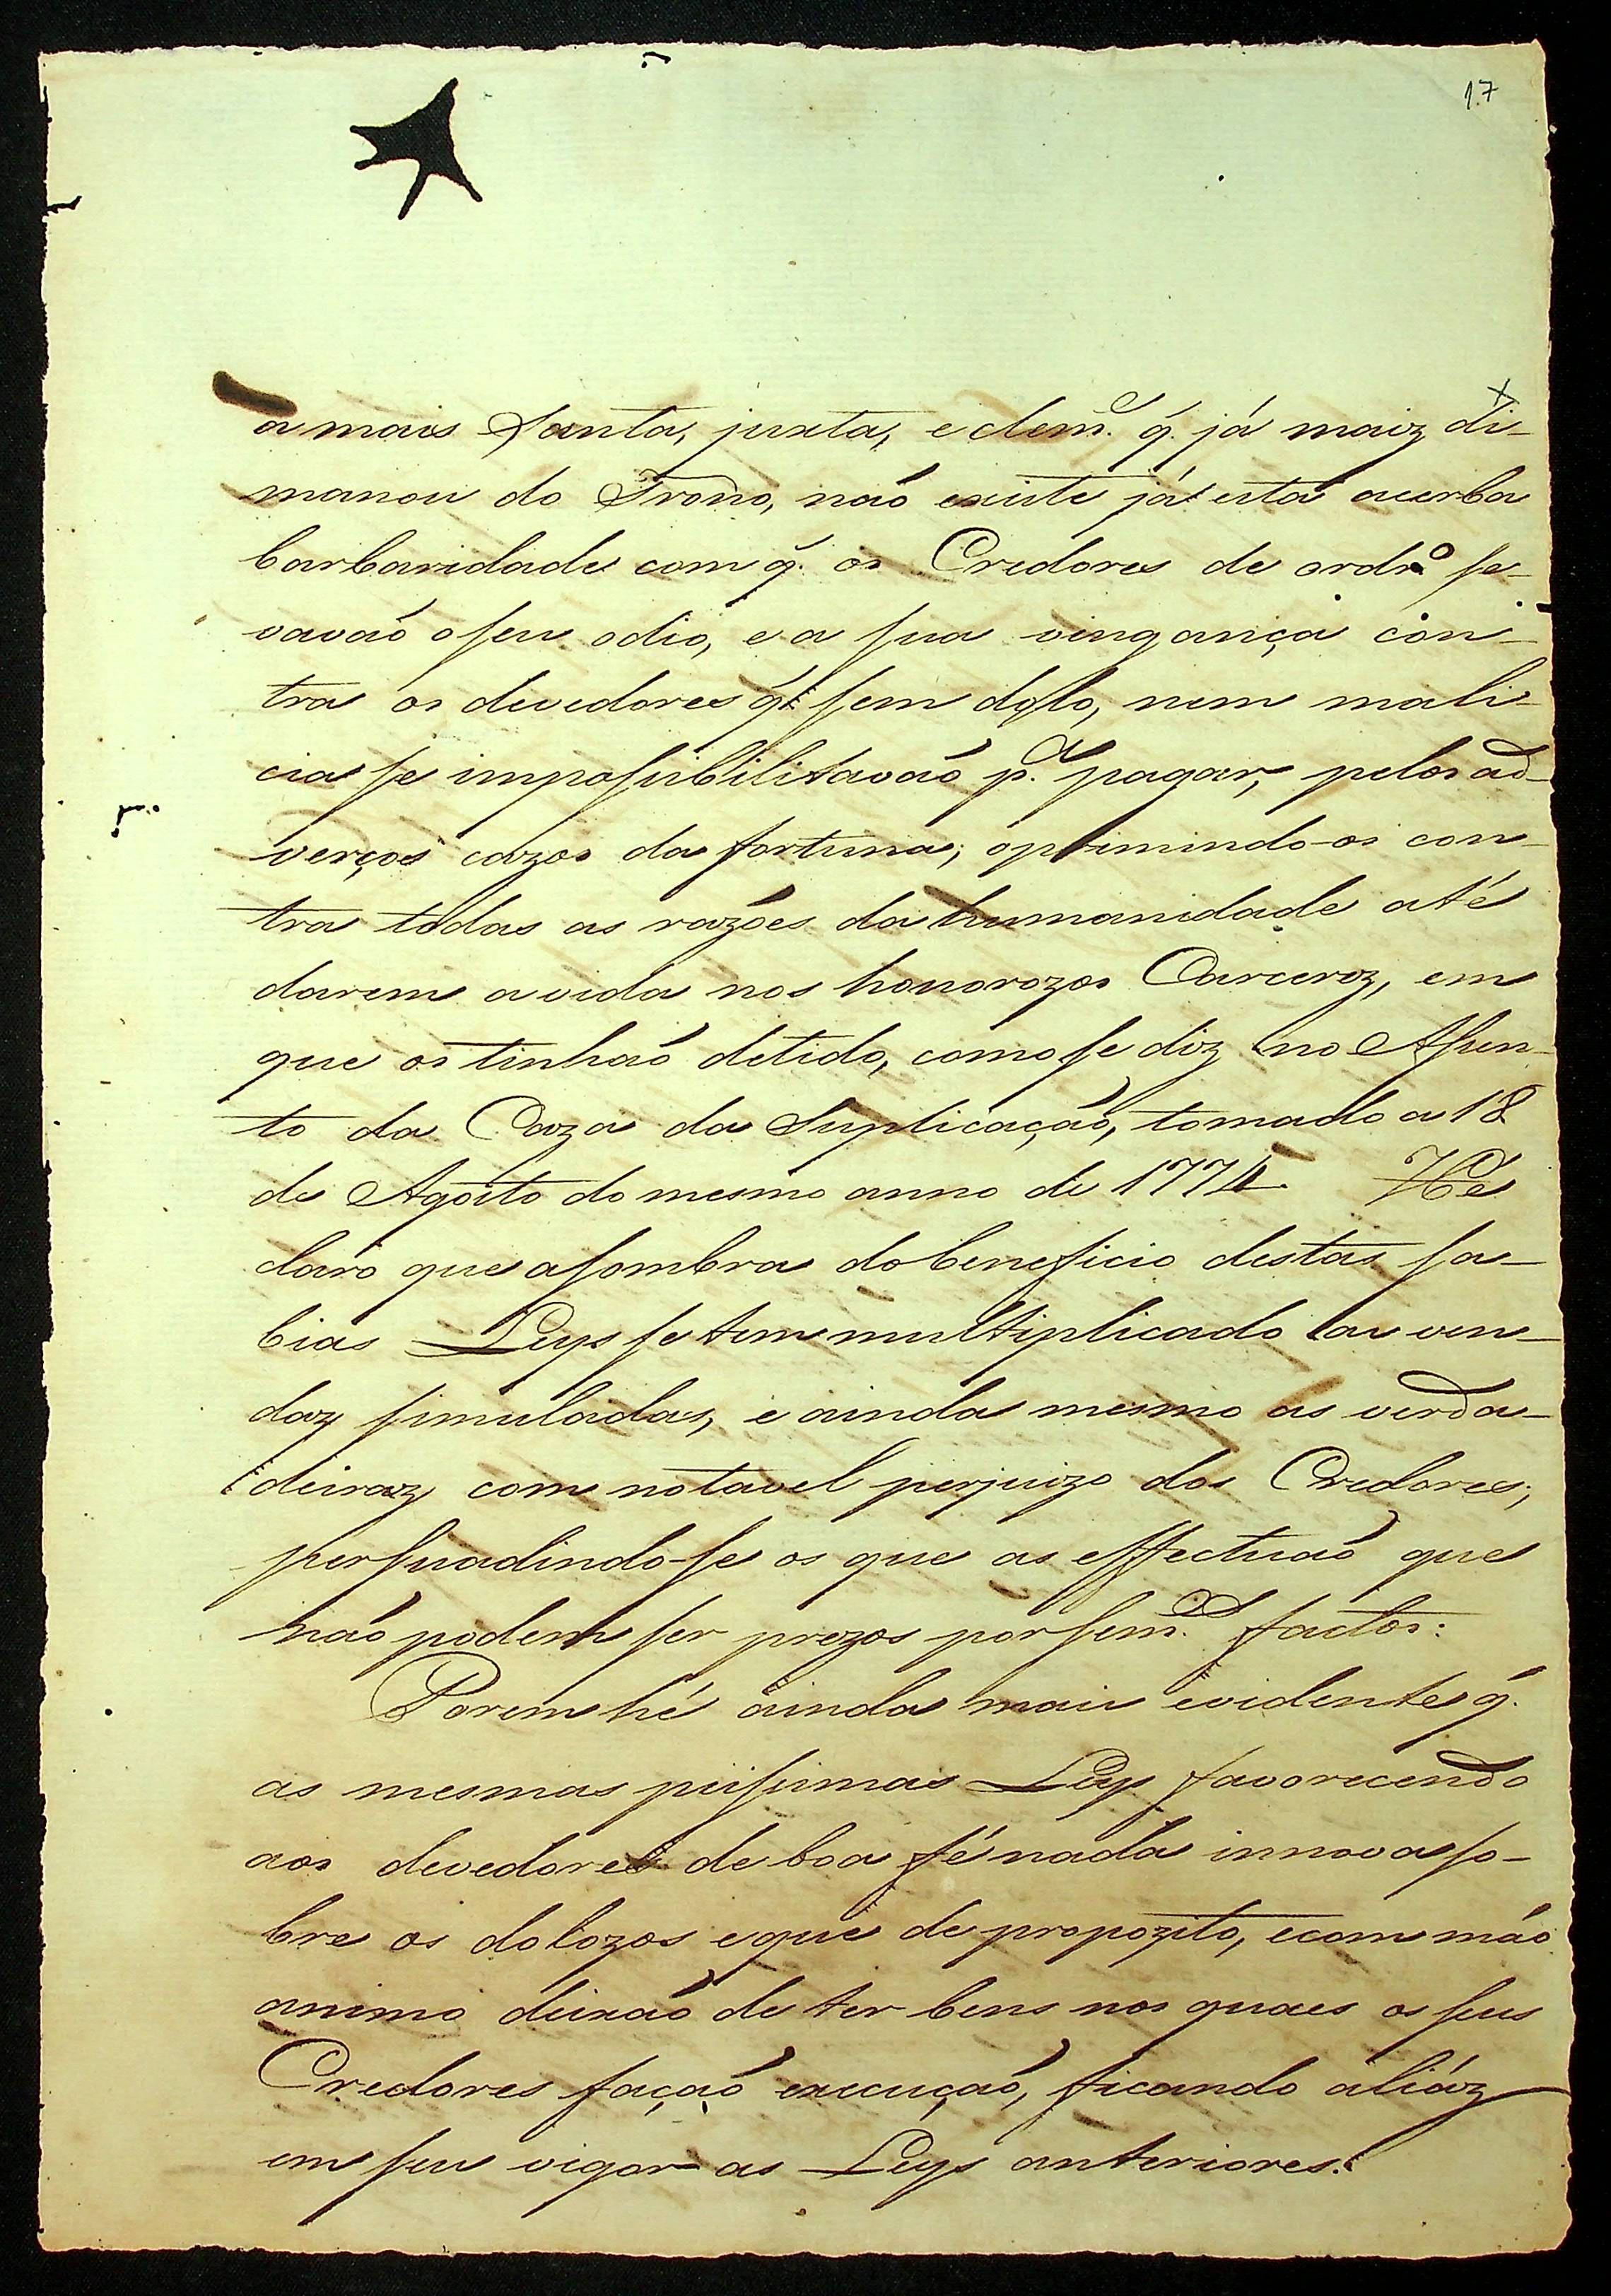 17
a mais Santa, justa, e clem.e q̃. já maiz di-
manou do Trono, naõ existe já esta acerba
barbaridade com q̃. os Credores de ordr.o se-
vavaõ o seu odio, e a sua vingança con-
tra os devedores q̃. sem dolo, nem mali-
cia se imposibilitavaõ p.a pagar, pelos ad-
verços cazos da fortuna; oprimindo-os con-
tra todas as razões da humanidade até
darem a vida nos honorozos Carceroz, em
que os tinhaõ detido, como se diz no Assen-
to da Caza da Suplicaçaõ, tomado a 18
de Agosto do mesmo anno de 1774. He
claro que a sombra do beneficio destas sa-
bias Leys se tem multiplicado as ven-
daz simuladas, e ainda mesmo as verda-
deiraz com notavel perjuizo dos Credores;
persuadindo-se os que as effectuaõ que
naõ podem ser prezos por sem.es factos:
Porem hé ainda mais evidente q̃.
as mesmas piissimas Leys favorecendo
aos devedores de boa fé nada innova so-
bre os dolozos e que de propozito, e com máo
animo deixaõ de ter bens nos quaes os seus
Credores façaõ execuçaõ, ficando aliáz
em seu vigor as Leys anteriores.